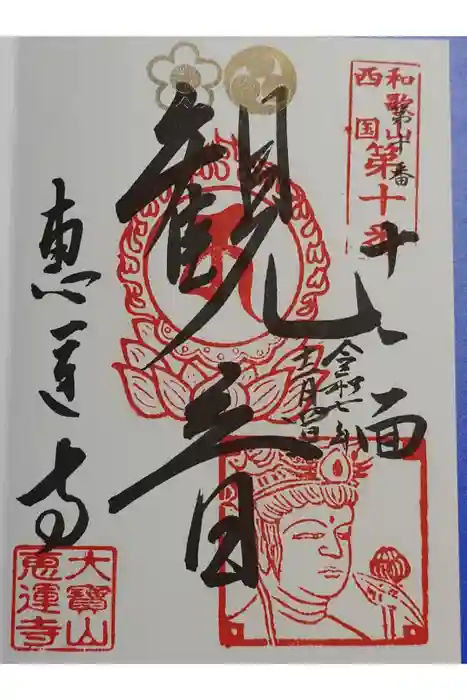 和歌山
西国
第十番
第十番
十一面
観音
令和七年
十二月四日
恵運寺
大寶山
恵運寺